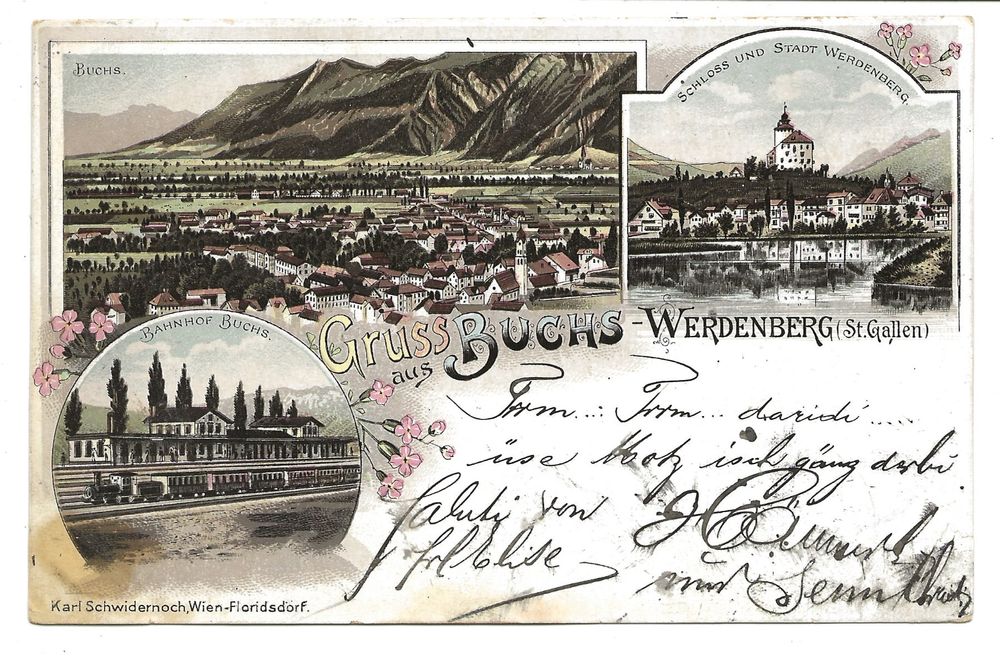 BUCHS.
SCHLOSS UND STADT WERDENBERG.
BAHNHOF BUCHS.
Gruss aus BUCHS-WERDENBERG (St. Gallen)
Trrm... Trrm... daridi.....
üse Motz isch gäng derbi
Saluti von
Frl Elise
und Senn
Karl Schwidernoch, Wien-Floridsdorf.